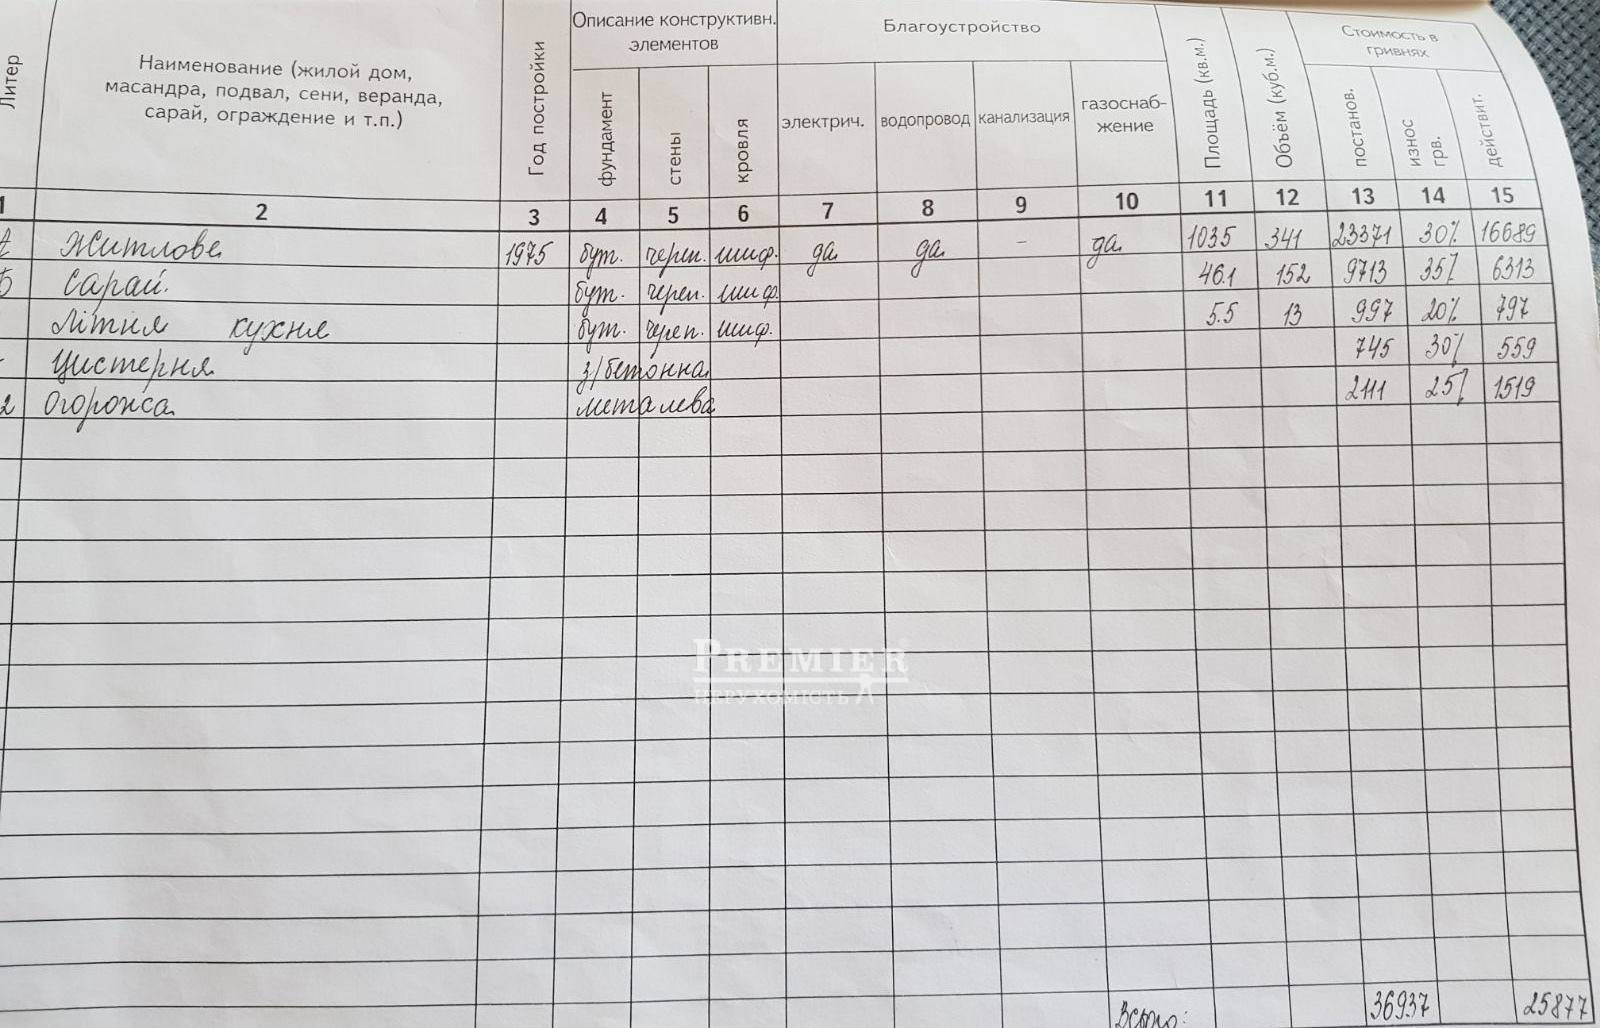 Литер
Наименование (жилой дом, масандра, подвал, сени, веранда, сарай, ограждение и т.п.)
Год постройки
Описание конструктивн. элементов
фундамент
стены
кровля
Благоустройство
электрич.
водопровод
канализация
газоснаб-жение
Площадь (кв.м.)
Объём (куб.м.)
Стоимость в гривнях
постанов.
износ грв.
действит.
1 2 3 4 5 6 7 8 9 10 11 12 13 14 15
Житлове 1975 бут. череп. шиф. да да - да 1035 341 23371 30% 16689
Б Сарай. бут. череп. шиф. 46.1 152 9713 35% 6313
Літня кухня бут. череп. шиф. 5.5 13 997 20% 797
Цистерня з/бетонна 745 30% 559
2 Огорожа металева 2111 25% 1519
PREMIER
НЕРУХОМІСТЬ
Всього: 36937 25877